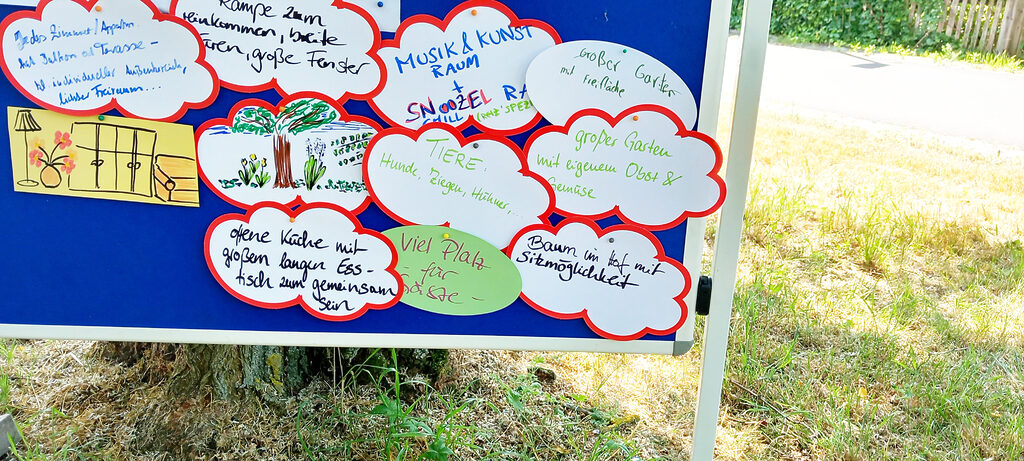 Jedes Zimmer / Appartm.
hat Balkon od Terasse -
als individueller Außenbereich,
Rampe zum
reinkommen, breite
Türen, große Fenster
MUSIK & KUNST
RAUM
+
SNOOZEL RA
CHILL
Großer Garten
mit Freifläche
TIERE:
Hunde, Ziegen, Hühner,...
großer Garten
mit eigenem Obst &
Gemüse
offene Küche mit
großem langen Ess-
tisch zum gemeinsam
sein
Viel Platz
für
Gäste -
Baum im Hof mit
Sitzmöglichkeit